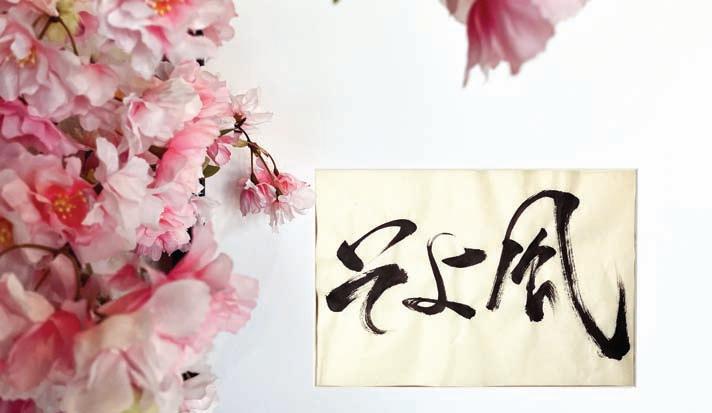 そよ風